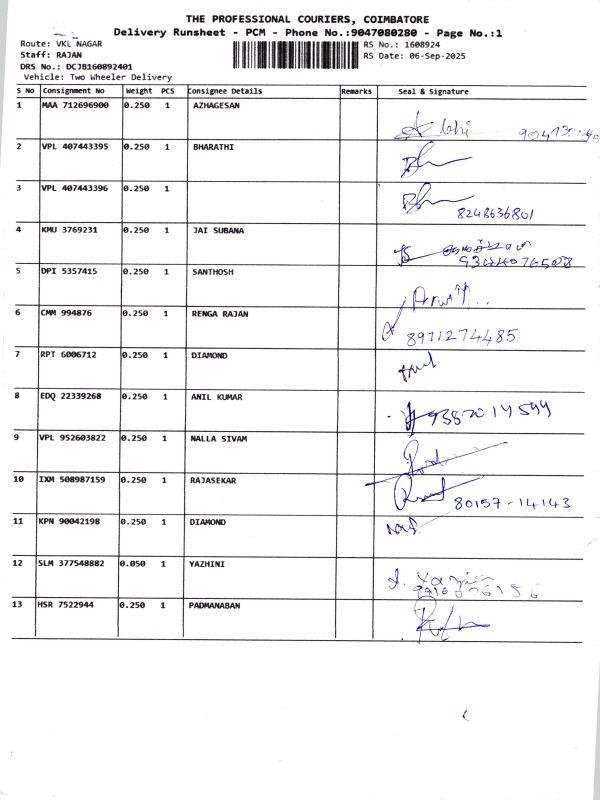 THE PROFESSIONAL COURIERS, COIMBATORE
Delivery Runsheet - PCM - Phone No.:9047080280 - Page No.:1
Route: VKL NAGAR RS No.: 1608924
Staff: RAJAN RS Date: 06-Sep-2025
DRS No.: DCJB160892401
Vehicle: Two Wheeler Delivery
S No Consignment No Weight PCS Consignee Details Remarks Seal & Signature
1 MAA 712696900 0.250 1 AZHAGESAN
2 VPL 407443395 0.250 1 BHARATHI
3 VPL 407443396 0.250 1
8248636801
4 KMU 3769231 0.250 1 JAI SUBANA
5 DPI 5357415 0.250 1 SANTHOSH
6 CMM 994876 0.250 1 RENGA RAJAN
8971274485
7 RPT 6006712 0.250 1 DIAMOND
8 EDQ 22339268 0.250 1 ANIL KUMAR
9 VPL 952603822 0.250 1 NALLA SIVAM
10 IXM 508987159 0.250 1 RAJASEKAR
80157-14143
11 KPN 90042198 0.250 1 DIAMOND
12 SLM 377548882 0.050 1 YAZHINI
13 HSR 7522944 0.250 1 PADMANABAN